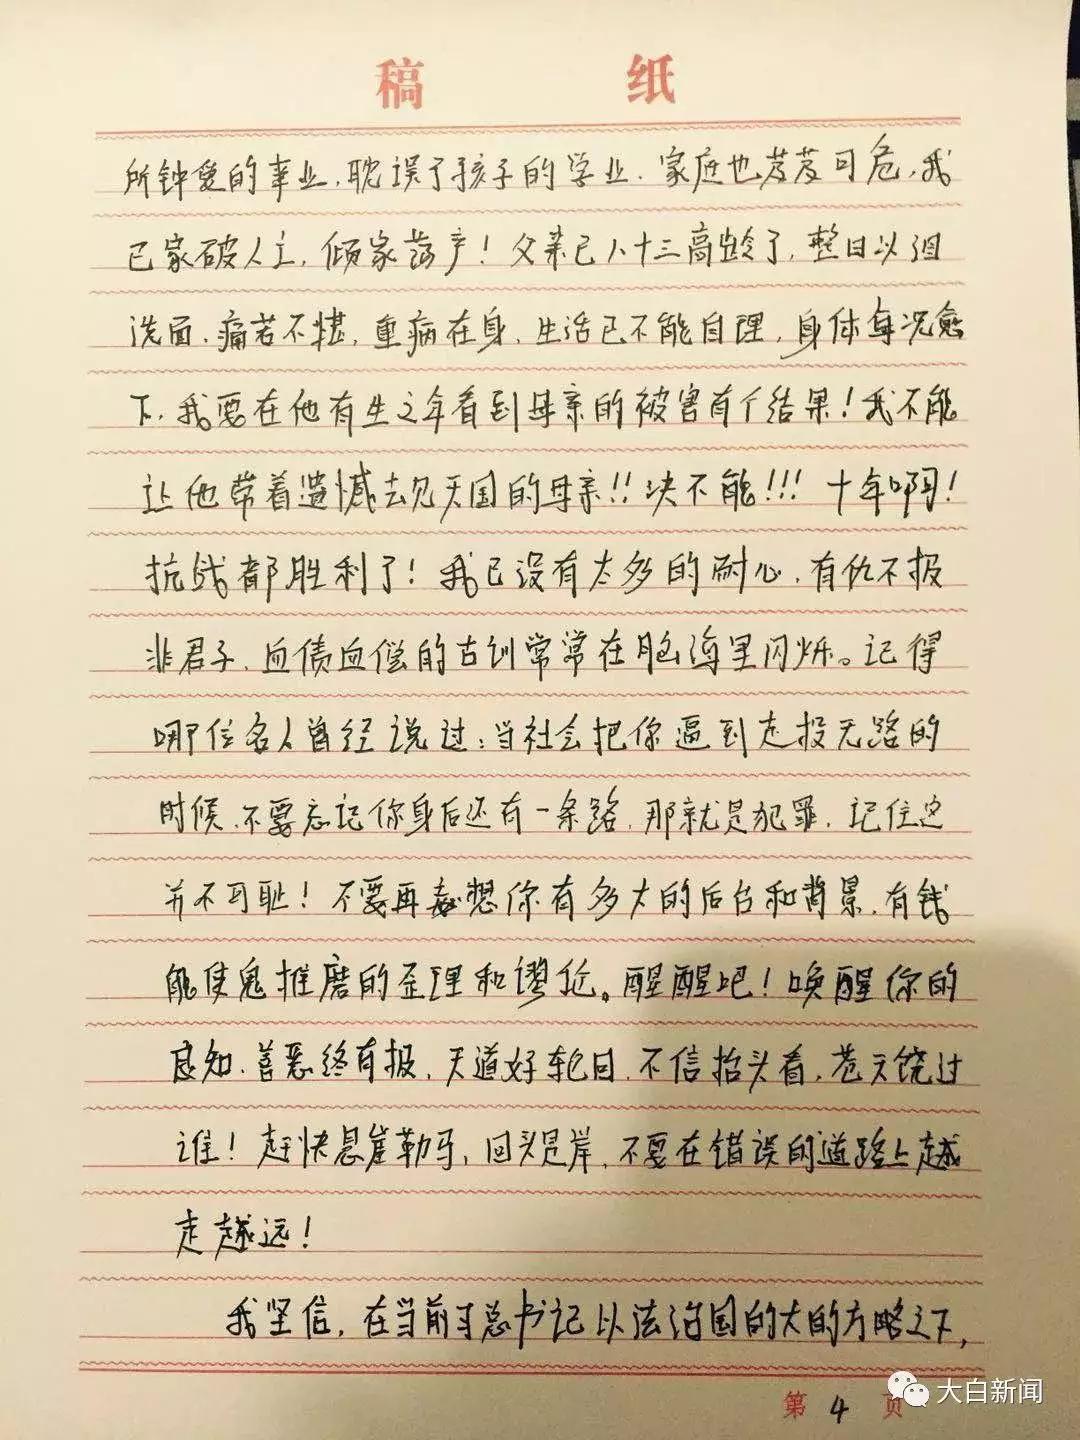 稿 纸
所钟爱的事业，耽误了孩子的学业，家庭也岌岌可危，我
已家破人亡，倾家荡产！父亲已八十三高龄了，整日以泪
洗面，痛苦不堪，重病在身，生活已不能自理，身体每况愈
下，我要在他有生之年看到母亲的被害有个结果！我不能
让他带着遗憾去见天国的母亲!!决不能!!!十年啊!
抗战都胜利了！我已没有太多的耐心，有仇不报
非君子，血债血偿的古训常常在脑海里闪烁。记得
哪位名人曾经说过：当社会把你逼到走投无路的
时候，不要忘记你身后还有一条路，那就是犯罪，记住这
并不可耻！不要再想你有多大的后台和背景，有钱
能使鬼推磨的歪理和谬论。醒醒吧！唤醒你的
良知，善恶终有报，天道好轮回，不信抬头看，苍天饶过
谁！赶快悬崖勒马，回头是岸，不要在错误的道路上越
走越远！
我坚信，在当前习总书记以法治国的大的方略之下，
第 4 页
大白新闻